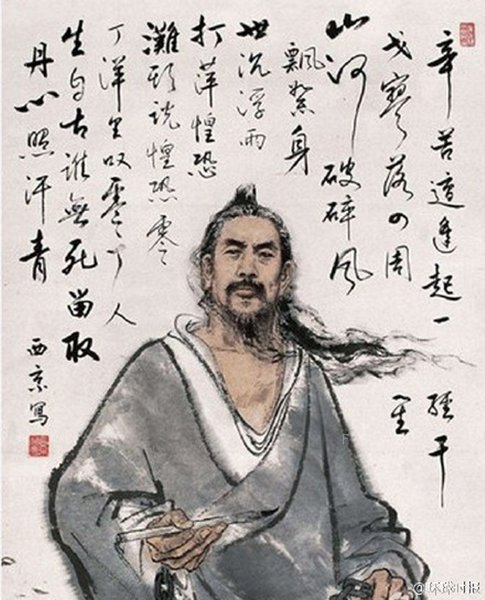 辛苦遭逢起一經干
戈寥落四周星
山河破碎風
飄絮身
世沉浮雨
打萍惶恐
灘頭說惶恐零
丁洋里嘆零丁人
生自古誰無死留取
丹心照汗青
西京寫
@环球时报